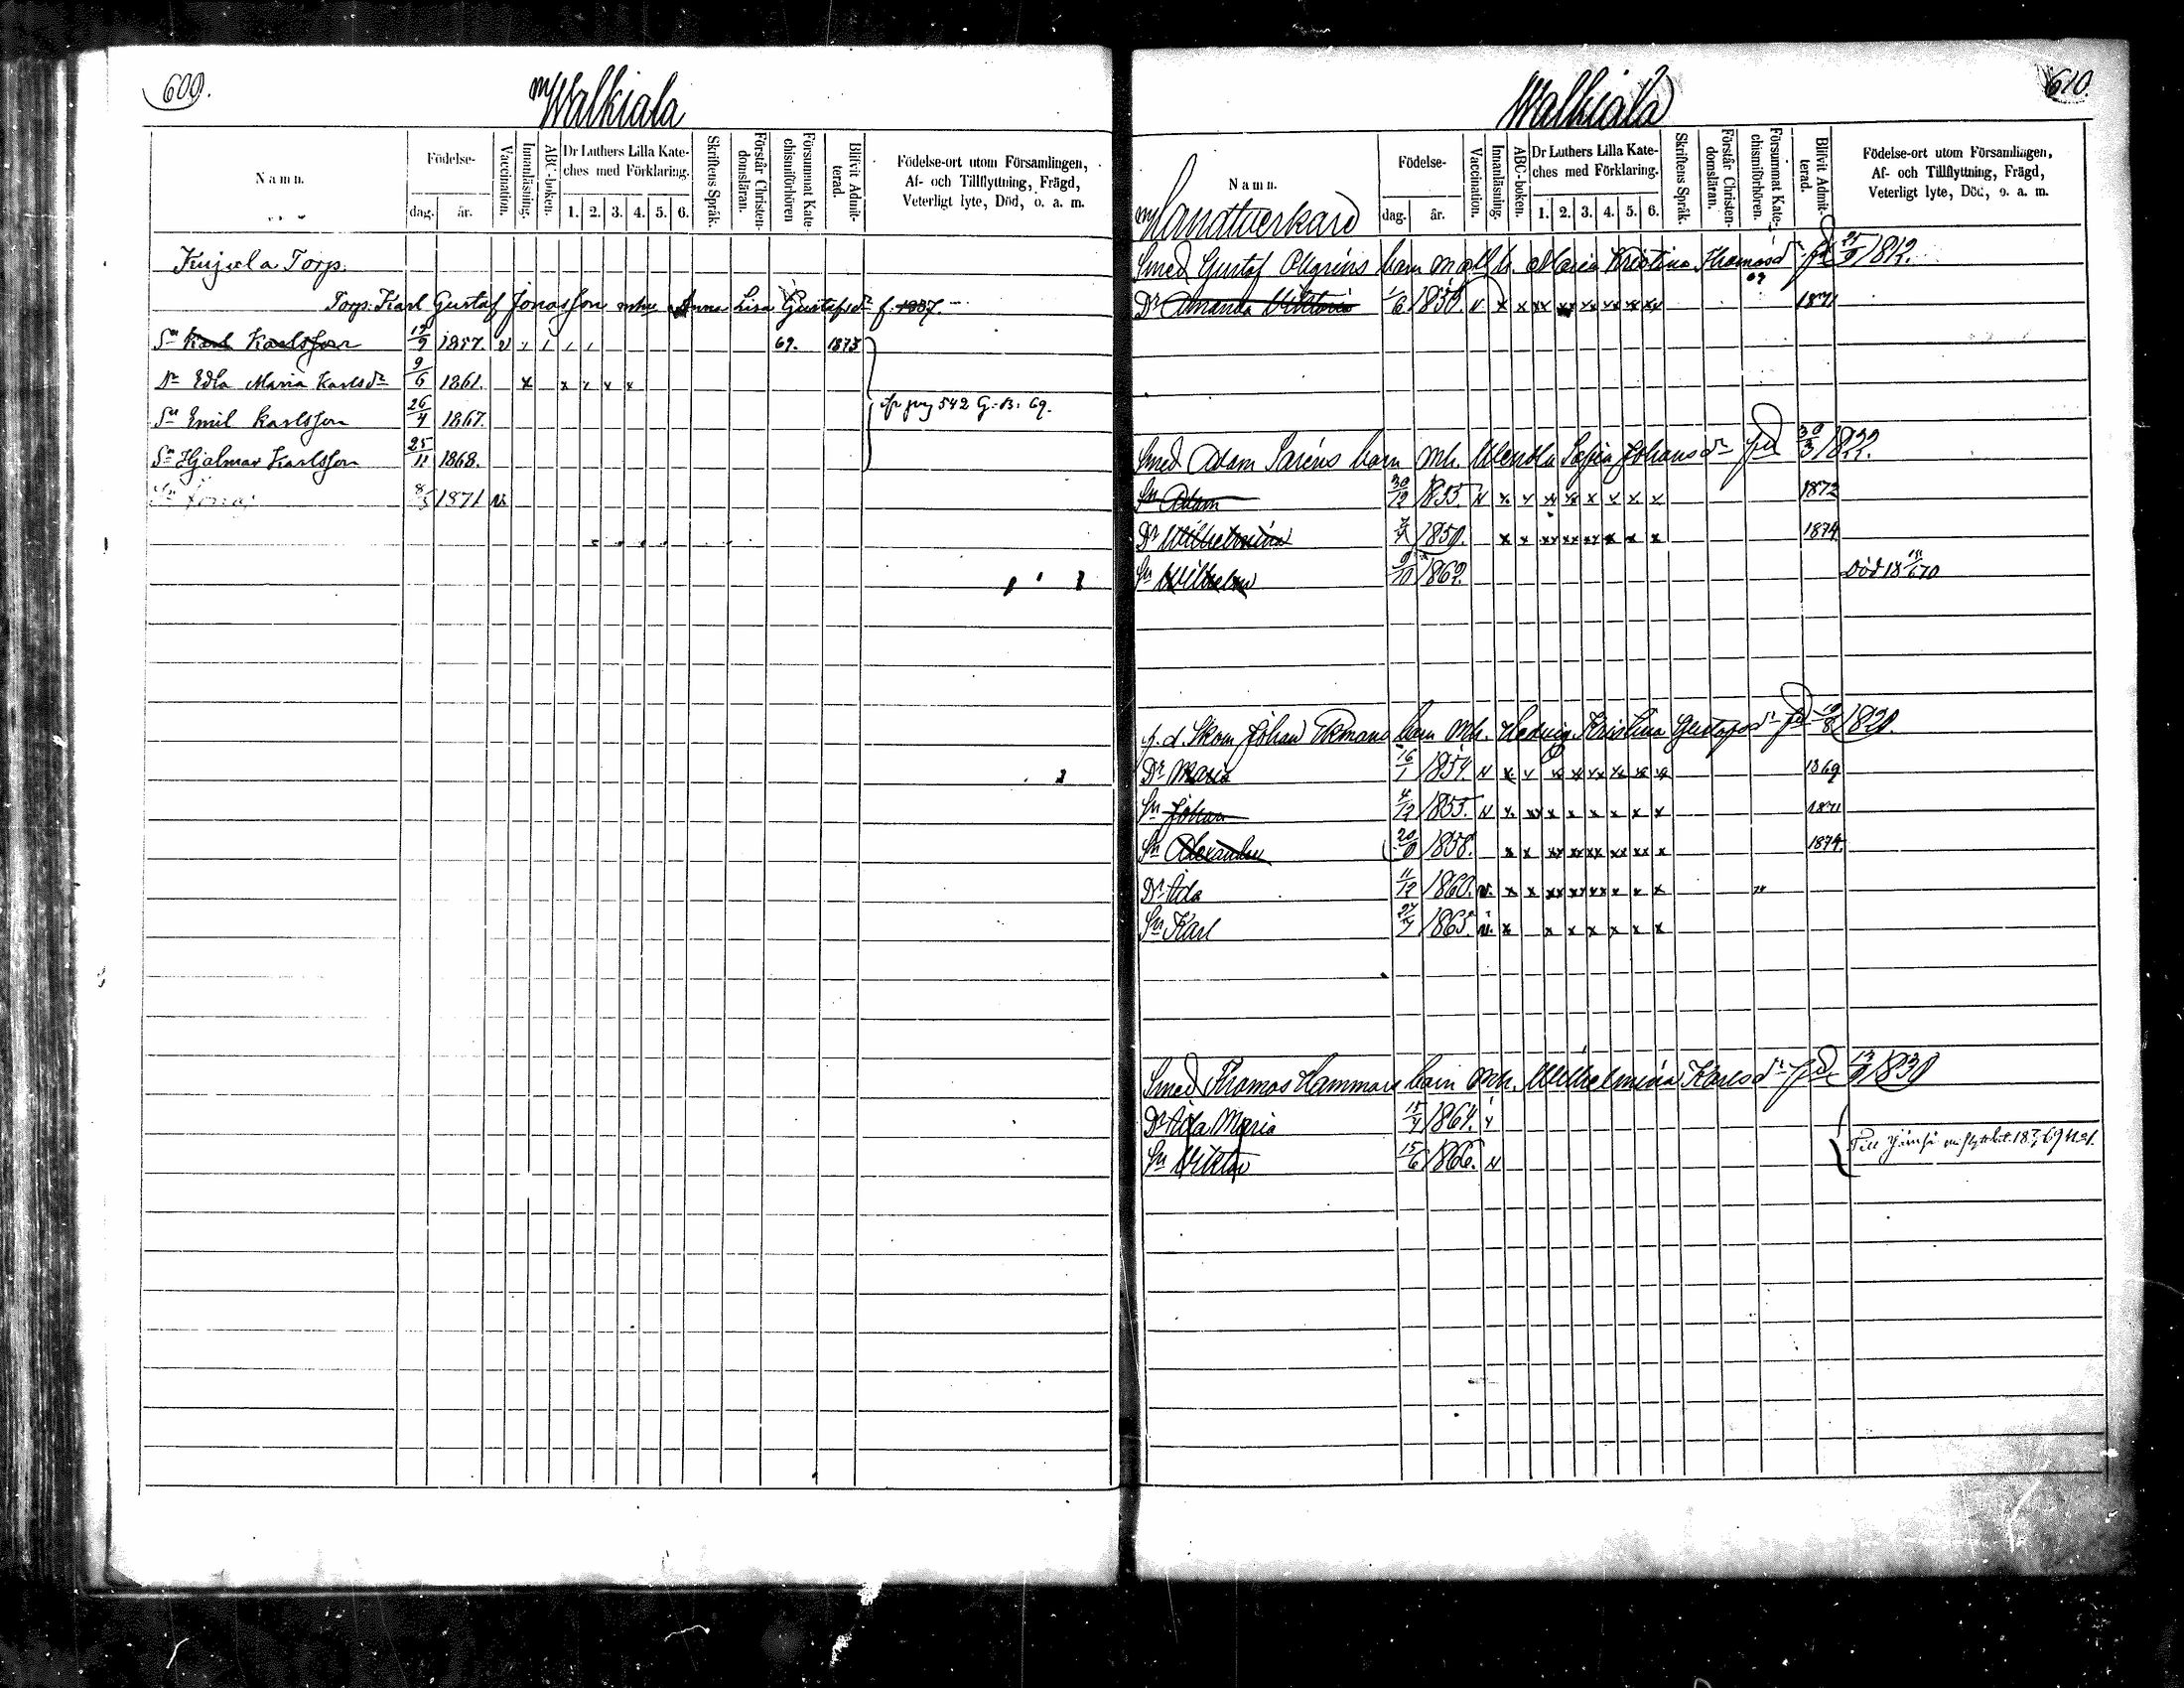 609.
Walkiala
Namn.
Födelse-
dag.
år.
Vaccination.
Innanläsning.
ABC-boken.
Dr Luthers Lilla Kate-
ches med Förklaring.
1. 2. 3. 4. 5. 6.
Skriftens Språk.
Förstår Christen-
domsläran.
Försummat Kate-
chismiförhören
Blifvit Admit-
terad.
Födelse-ort utom Församlingen,
Af- och Tillflyttning, Frägd,
Veterligt lyte, Död, o. a. m.
Kujala Torp.
Torp. Karl Gustaf Jonasson Anna Lisa Gustafsdr f. 1837.
Sn Karl Karlsson 12/9 1857. v 69. 1873
Dr Edla Maria Karlsdr 9/6 1861. x x x x x
Sn Emil Karlsson 26/4 1867. pag 542 G. B. 69.
Sn Hjalmar Karlsson 25/11 1868.
Sn 8/3 1871 v
610.
Walkiala
Namn.
Födelse-
dag.
år.
Vaccination.
Innanläsning.
ABC-boken.
Dr Luthers Lilla Kate-
ches med Förklaring.
1. 2. 3. 4. 5. 6.
Skriftens Språk.
Förstår Christen-
domsläran.
Försummat Kate-
chismiförhören.
Blifvit Admit-
terad.
Födelse-ort utom Församlingen,
Af- och Tillflyttning, Frägd,
Veterligt lyte, Död, o. a. m.
Handtverkare
Smed Gustaf barn m. Maria Kristina Thomasdr 1812.
Dr Amanda Viktoria 1/6 v x x xx xx xx xx xx xx 69 1871
Smed Adam Saréns barn mh. Wendla Sofia Johansdr fdd 30/3 1822.
Sn Adam 30/12 1855. v x x x x x x x x 1872
Dr Wilhelmina 1859. x x xx xx xx x x x 1874
Sn Wilhelm 9/10 1862. Död 18
f. d. Skom. Johan Ekmans barn mh. Hedvig Kristina Gustafsdr fdd 1820.
Dr Maria 16/1 1854. v x x x x xx x x x 1869
Sn Johan 4/12 1855. v x xx x x x x x x 1871
Sn Alexander 20/9 1858. x x xx xx xx xx xx x 1874.
Dr Ada 11/12 1860. v. x x xx xx xx x x x 74
Sn Karl 1865. v. x x x x x x x
Smed Thomas Hammars barn mh. Wilhelmina Karlsdr fdd 1830
Dr Aja Maria 1864. v
Sn Viktor 15/6 1866. v
Till Jämsä